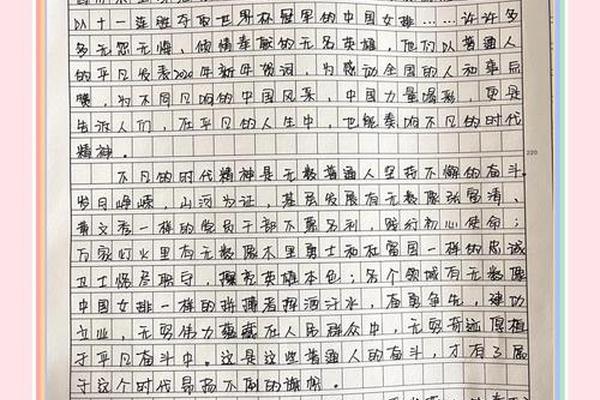 以十一连胜夺取世界杯冠军的中国女排……许许多
多无怨无悔、倾情奉献的无名英雄，他们以普通人
的平凡发表2020年新年贺词，为感动全国的人和事点
赞，为不同凡响的中国风采、中国力量喝彩，更是
告诉人们，在平凡的人生中，也能奏响不凡的时代
精神。
220
不凡的时代精神是无数普通人坚持不懈的奋斗。
岁月峥嵘，山河为证，基层发展有无数像张富清、
黄文秀一样的党员干部不慕名利，践行初心使命；
万家灯火里有无数像木里勇士和杜富国一样的忠诚
卫士恪尽职守，擦亮英雄本色；各个领域有无数像
中国女排一样的拼搏者挥洒汗水，奋勇争先，建功
立业，无穷伟力蕴藏在人民群众中，无穷奇迹
于平凡奋斗中。这是这些普通人的奋斗，才有了属
于这个时代昂扬不倒的旗帜。